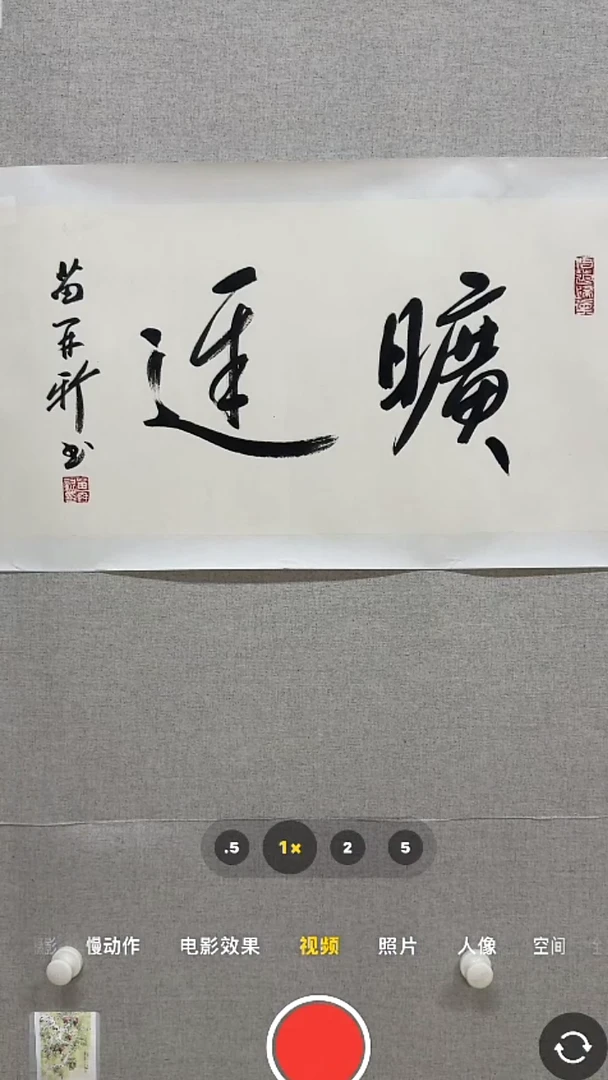 曠達
苗再新书
.5 1× 2 5
慢动作 电影效果 视频 照片 人像 空间